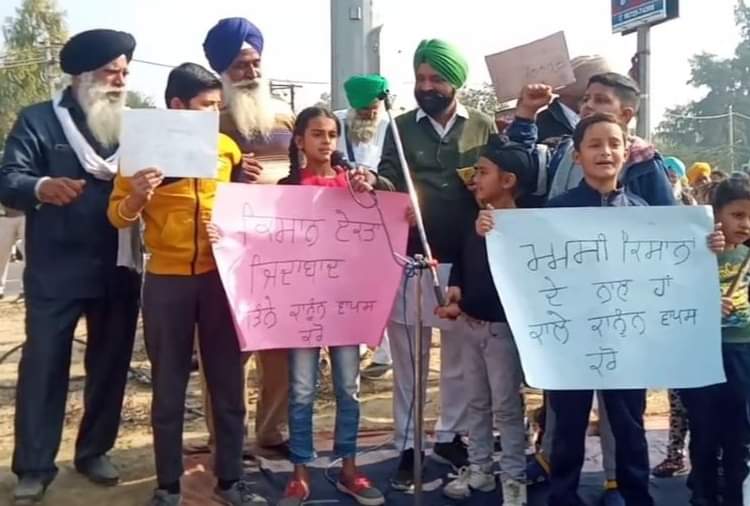 ਕਿਸਾਨ ਏਕਤਾ
ਜਿੰਦਾਬਾਦ
ਤਿੰਨੇ ਕਾਨੂੰਨ ਵਾਪਸ
ਕਰੋ
ਕਿਸਾਨਾਂ
ਦੇ ਨਾਲ ਹਾਂ
ਕਾਲੇ ਕਾਨੂੰਨ ਵਾਪਸ
ਕਰੋ